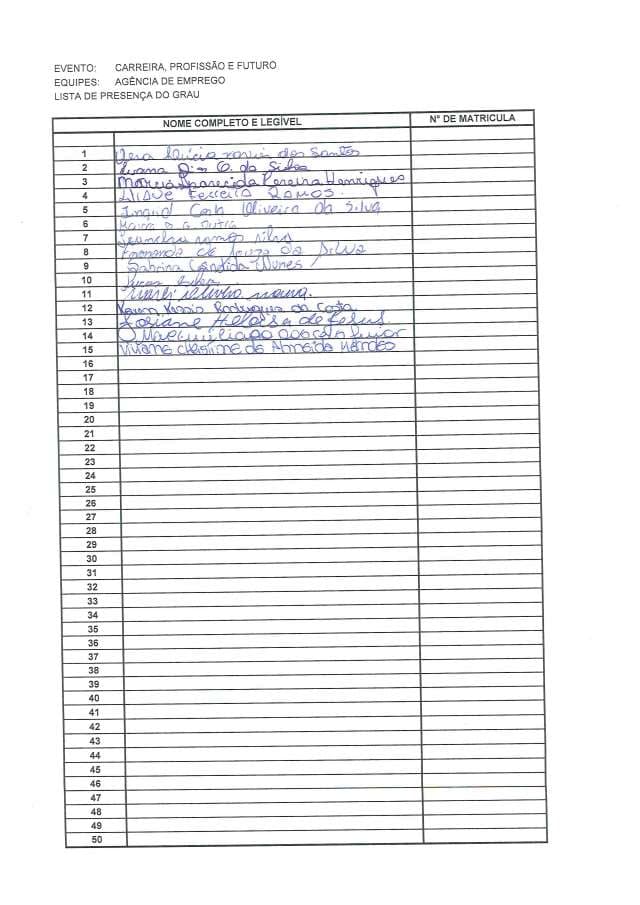 EVENTO: CARREIRA, PROFISSÃO E FUTURO
EQUIPES: AGÊNCIA DE EMPREGO
LISTA DE PRESENÇA DO GRAU
NOME COMPLETO E LEGÍVEL N° DE MATRICULA
1 Vera Lúcia dos Santos
2 da Silva
3 Aparecida Pereira Henriques
4 Ferreira Ramos
5 Ingrid Oliveira da Silva
6
7 Silva
8 Fernanda de Souza da Silva
9 Sabrina Candida Nunes
10
11
12 Rodrigues da Costa
13 Josiane Heloisa de Jesus
14
15 Viviane Christine de Almeida Mendes
16
17
18
19
20
21
22
23
24
25
26
27
28
29
30
31
32
33
34
35
36
37
38
39
40
41
42
43
44
45
46
47
48
49
50